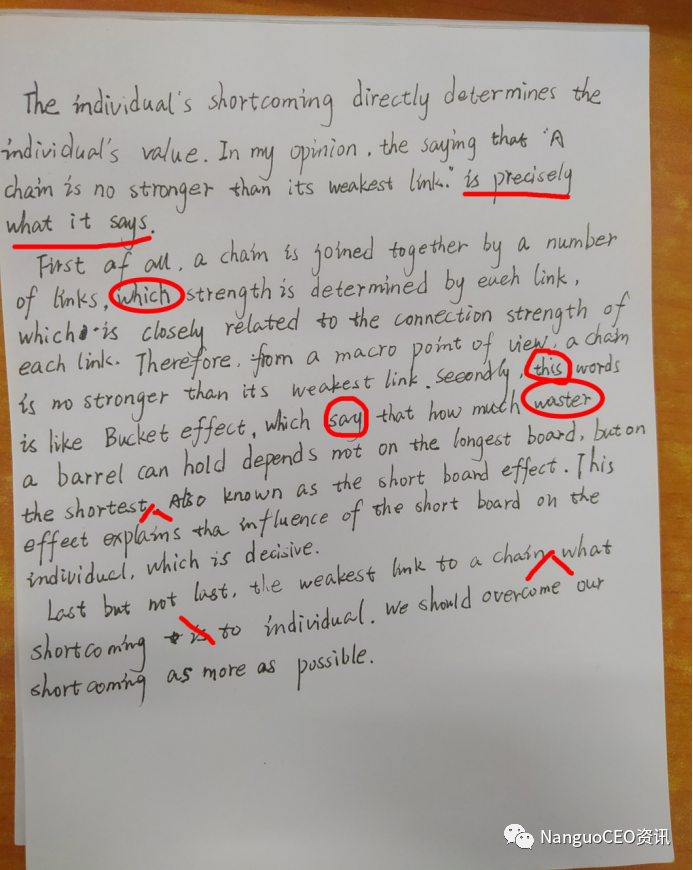 The individual's shortcoming directly determines the
individual's value. In my opinion, the saying that "A
chain is no stronger than its weakest link." is precisely
what it says.
First of all, a chain is joined together by a number
of links, which strength is determined by each link,
which is closely related to the connection strength of
each link. Therefore, from a macro point of view, a chain
is no stronger than its weakest link. Secondly, this words
is like Bucket effect, which say that how much waster
a barrel can hold depends not on the longest board, but on
the shortest. Also known as the short board effect. This
effect explains tha influence of the short board on the
individual, which is decisive.
Last but not last, the weakest link to a chain what
shortcoming is to individual. We should overcome our
shortcoming as more as possible.
NanguoCEO资讯